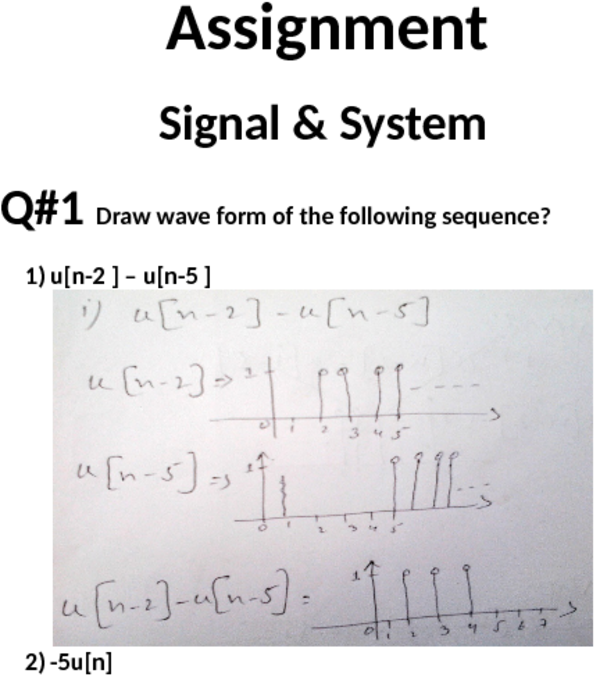 Assignment
Signal & System
Q#1 Draw wave form of the following sequence?
1) u[n-2 ] – u[n-5 ]
i) u[n-2] - u[n-5]
u[n-2] => 1
0 1 2 3 4 5
u[n-5] => 1
0 1 2 3 4 5
u[n-2]-u[n-5] =
1
0 1 2 3 4 5 6 7
2) -5u[n]